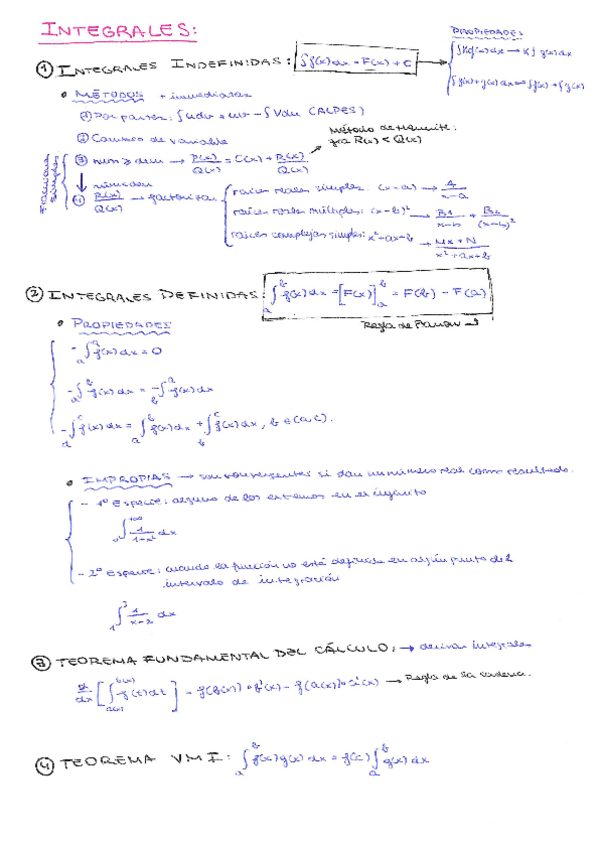 INTEGRALES:
PROPIEDADES
① INTEGRALES INDEFINIDAS: ∫f(x)dx = F(x) + C
∫Kf(x)dx → K∫f(x)dx
∫f(x)+g(x)dx → ∫f(x) + ∫g(x)
• MÉTODOS + inmediatas
① Por partes: ∫udv = uv - ∫vdu (ALPES)
② Cambio de variable
Método de Hermite:
R(x) < Q(x)
Fracciones simples
③ num ≥ den → P(x)/Q(x) = C(x) + R(x)/Q(x)
num<den
④ R(x)/Q(x) → factorizar
raíces reales simples: (x-a) → A/x-a
raíces reales múltiples: (x-b)² → B1/x-b + B2/(x-b)²
raíces complejas simples: x²+ax+b → Mx+N/x²+ax+b
② INTEGRALES DEFINIDAS: ∫ₐᵇ f(x)dx = [F(x)]ₐᵇ = F(b) - F(a)
Regla de Barrow
• PROPIEDADES
- ∫ₐᵃ f(x)dx = 0
- ∫ₐᵇ f(x)dx = -∫ᵦᵃ f(x)dx
- ∫ₐᶜ f(x)dx = ∫ₐᵇ f(x)dx + ∫ᵦᶜ f(x)dx, b∈(a,c).
• IMPROPIAS → son convergentes si dan un número real como resultado.
- 1ª Especie: alguno de los extremos en el infinito
∫₀⁺∞ 1/1+x² dx
- 2ª Especie: cuando la función no está definida en algún punto del
intervalo de integración
∫₁³ 1/x-2 dx
③ TEOREMA FUNDAMENTAL DEL CÁLCULO: → derivar integrales
d/dx [∫a(x)b(x) f(t)dt] = f(b(x))·b'(x) - f(a(x))·a'(x) → Regla de la cadena.
④ TEOREMA VMI: ∫ₐᵇ f(x)g(x)dx = f(c)∫ₐᵇ g(x)dx